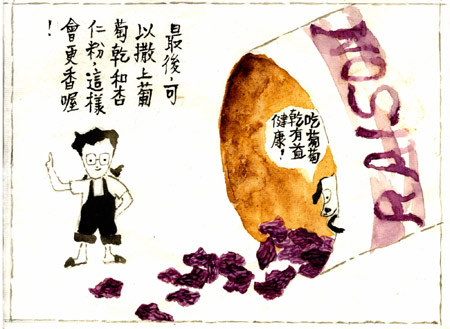 最後,可
以撒上葡
萄乾和杏
仁粉,這樣
會更香喔
!
吃葡萄
乾有益
健康!
RAISON